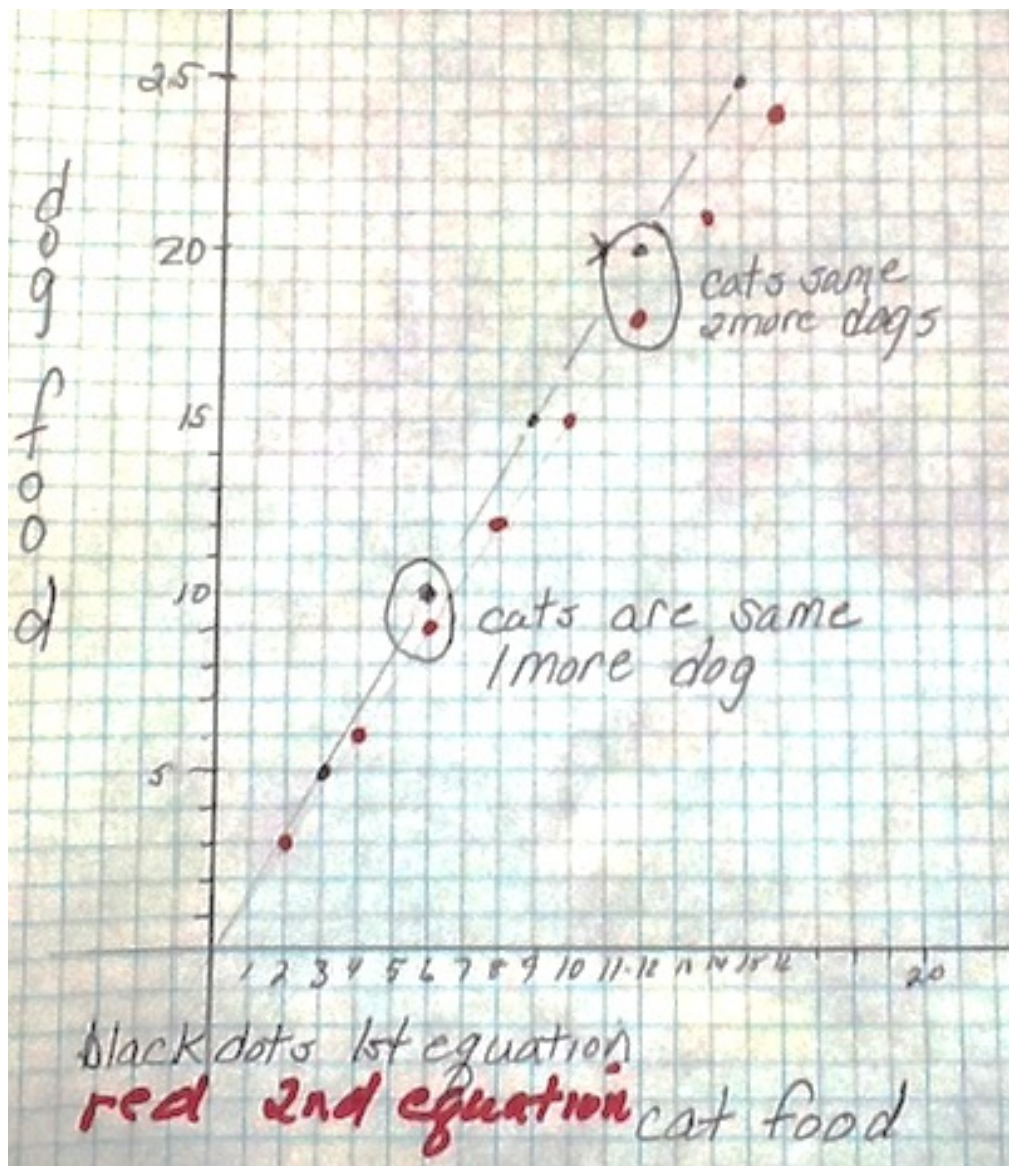 25
20
15
10
5
dog food
cats same
2 more dogs
cats are same
1 more dog
1 2 3 4 5 6 7 8 9 10 11 12 13 14 15 16 20
black dots 1st equation
red 2nd equation
cat food